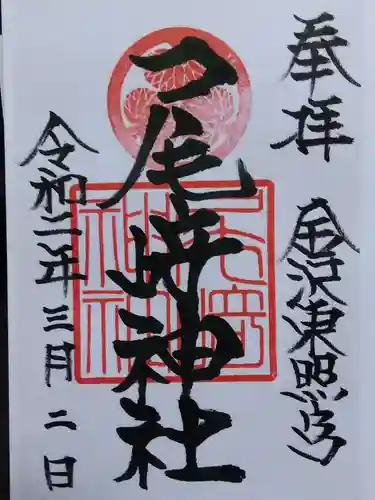 奉拝 金沢東照宮
尾崎神社
令和二年三月二日
尾崎
神社